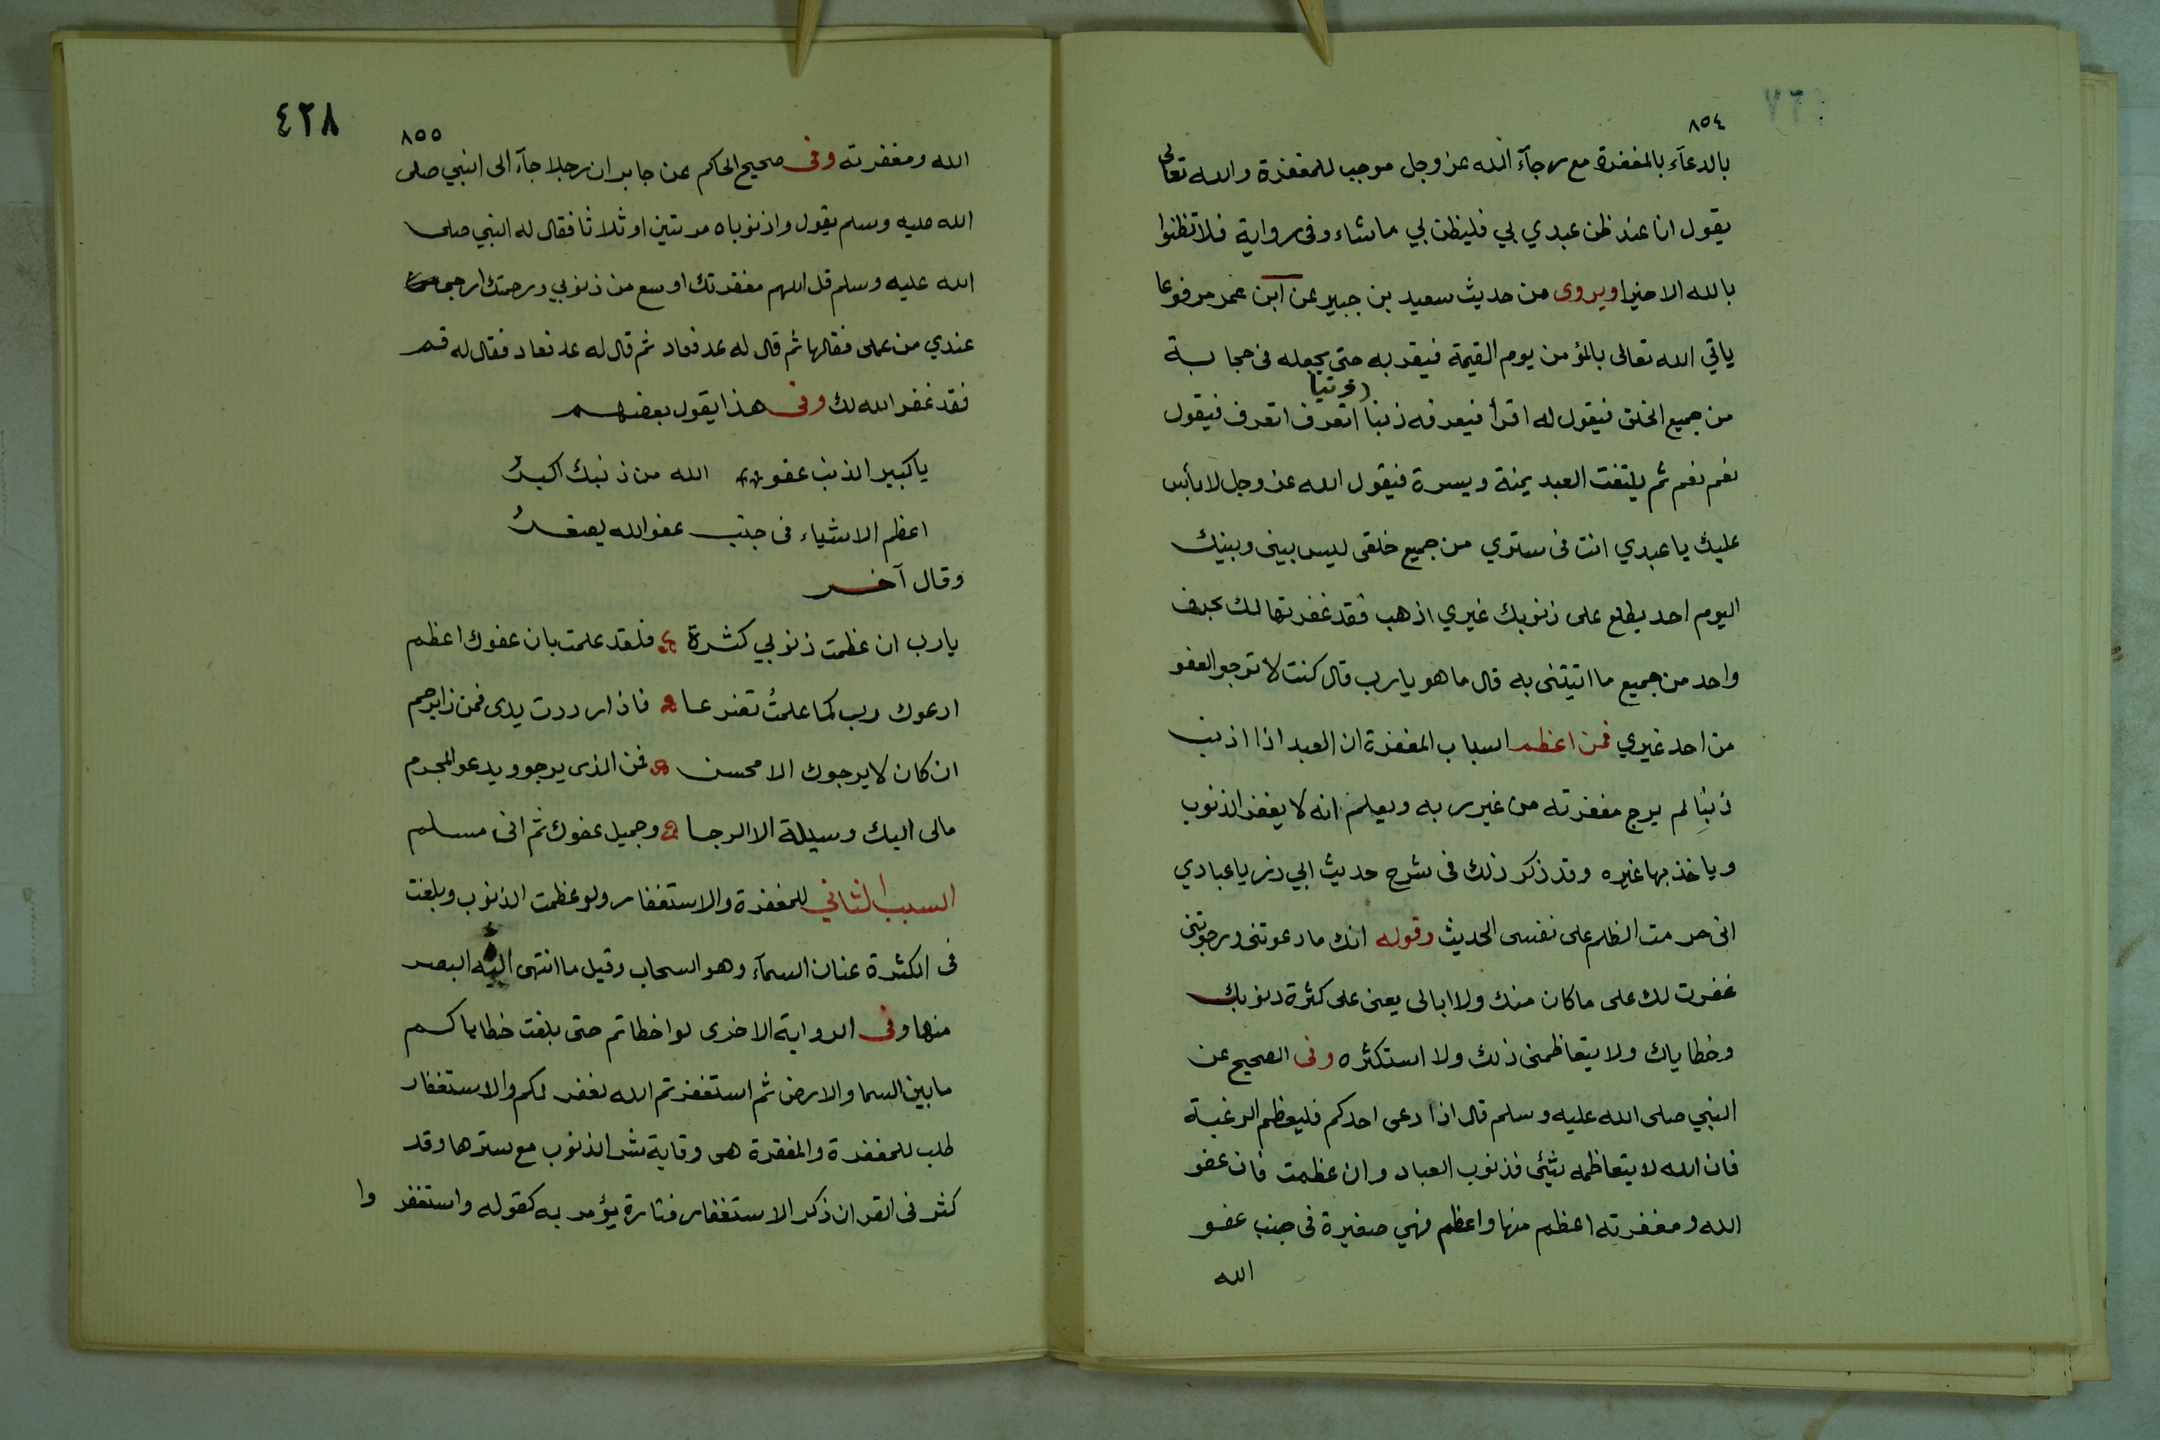 ٨٥٤
بالدعآء بالمغفرة مع رجآء الله عز وجل موجب للمغفرة والله تعالى
يقول انا عند ظن عبدي بي فليظن بي ما شاء وفى رواية فلا تظنوا
بالله الا خيرا ويروى من حديث سعيد بن جبير عن ابن عمر مرفوعا
ياتي الله تعالى بالمؤمن يوم القيمة فيقربه حتى يجعله فى حجابـة
من جميع الخلق فيقول له اقرأ فيعرفه ذنبا ذنبا اتعرف اتعرف فيقول
نعم نعم ثم يلتفت العبد يمنة ويسرة فيقول الله عز وجل لا بأس
عليك يا عبدي انت فى ستري من جميع خلقى ليس بينى وبينك
اليوم احد يطلع على ذنوبك غيري اذهب فقد غفرتها لك بحرف
واحد من جميع ما اتيتنى به قال ما هو يا رب قال كنت لا ترجو العفو
من احد غيري فمن اعظم اسباب المغفرة ان العبد اذا اذنب
ذنبا لم يرج مغفرته من غير ربه ويعلم انه لا يغفر الذنوب
وياخذ بها غيره وقد ذكر ذلك فى شرح حديث ابي ذر يا عبادي
انى حرمت الظلم على نفسى الحديث وقوله انك ما دعوتنى ورجوتنى
غفرت لك على ما كان منك ولا ابالى يعنى على كثرة ذنوبك
وخطاياك ولا يتعاظمنى ذلك ولا استكثره وفى الصحيح عن
النبي صلى الله عليه وسلم قال اذا دعى احدكم فليعظم الرغبة
فان الله لا يتعاظمه شئى فذنوب العباد وان عظمت فان عفو
الله ومغفرته اعظم منها واعظم فهي صغيرة فى جنب عفو
الله
٤٢٨
٨٥٥
الله ومغفرته وفى صحيح الحاكم عن جابر ان رجلا جآء الى النبي صلى
الله عليه وسلم يقول واذنوباه مرتين او ثلاثا فقال له النبي صلى
الله عليه وسلم قل اللهم مغفرتك اوسع من ذنوبي ورحمتك ارجى
عندي من عملى فقالها ثم قال له عد فعاد ثم قال له عد فعاد فقال له قم
فقد غفر الله لك وفى هذا يقول بعضهم
يا كبير الذنب عفو الله من ذنبك اكبرُ
اعظم الاشياء فى جنب عفو الله يصغرُ
وقال آخر
يا رب ان عظمت ذنوبي كثرة فلقد علمت بان عفوك اعظم
ادعوك رب كما علمت تضرعا فاذا رددت يدى فمن ذا يرحم
ان كان لا يرجوك الا محسن فمن الذى يرجو ويدعو المجرم
مالى اليك وسيلة الا الرجا وجميل عفوك ثم انى مسلم
السبب الثاني للمغفرة والاستغفار ولو عظمت الذنوب وبلغت
فى الكثرة عنان السمآء وهو السحاب وقيل ما انتهى اليه البصر
منها وفى الرواية الاخرى لو اخطاتم حتى بلغت خطاياكم
ما بين السما والارض ثم استغفرتم الله لغفر لكم والاستغفار
طلب للمغفرة والمغفرة هى وقاية شر الذنوب مع سترها وقد
كثر فى القران ذكر الاستغفار فتارة يؤمر به كقوله واستغفر وا